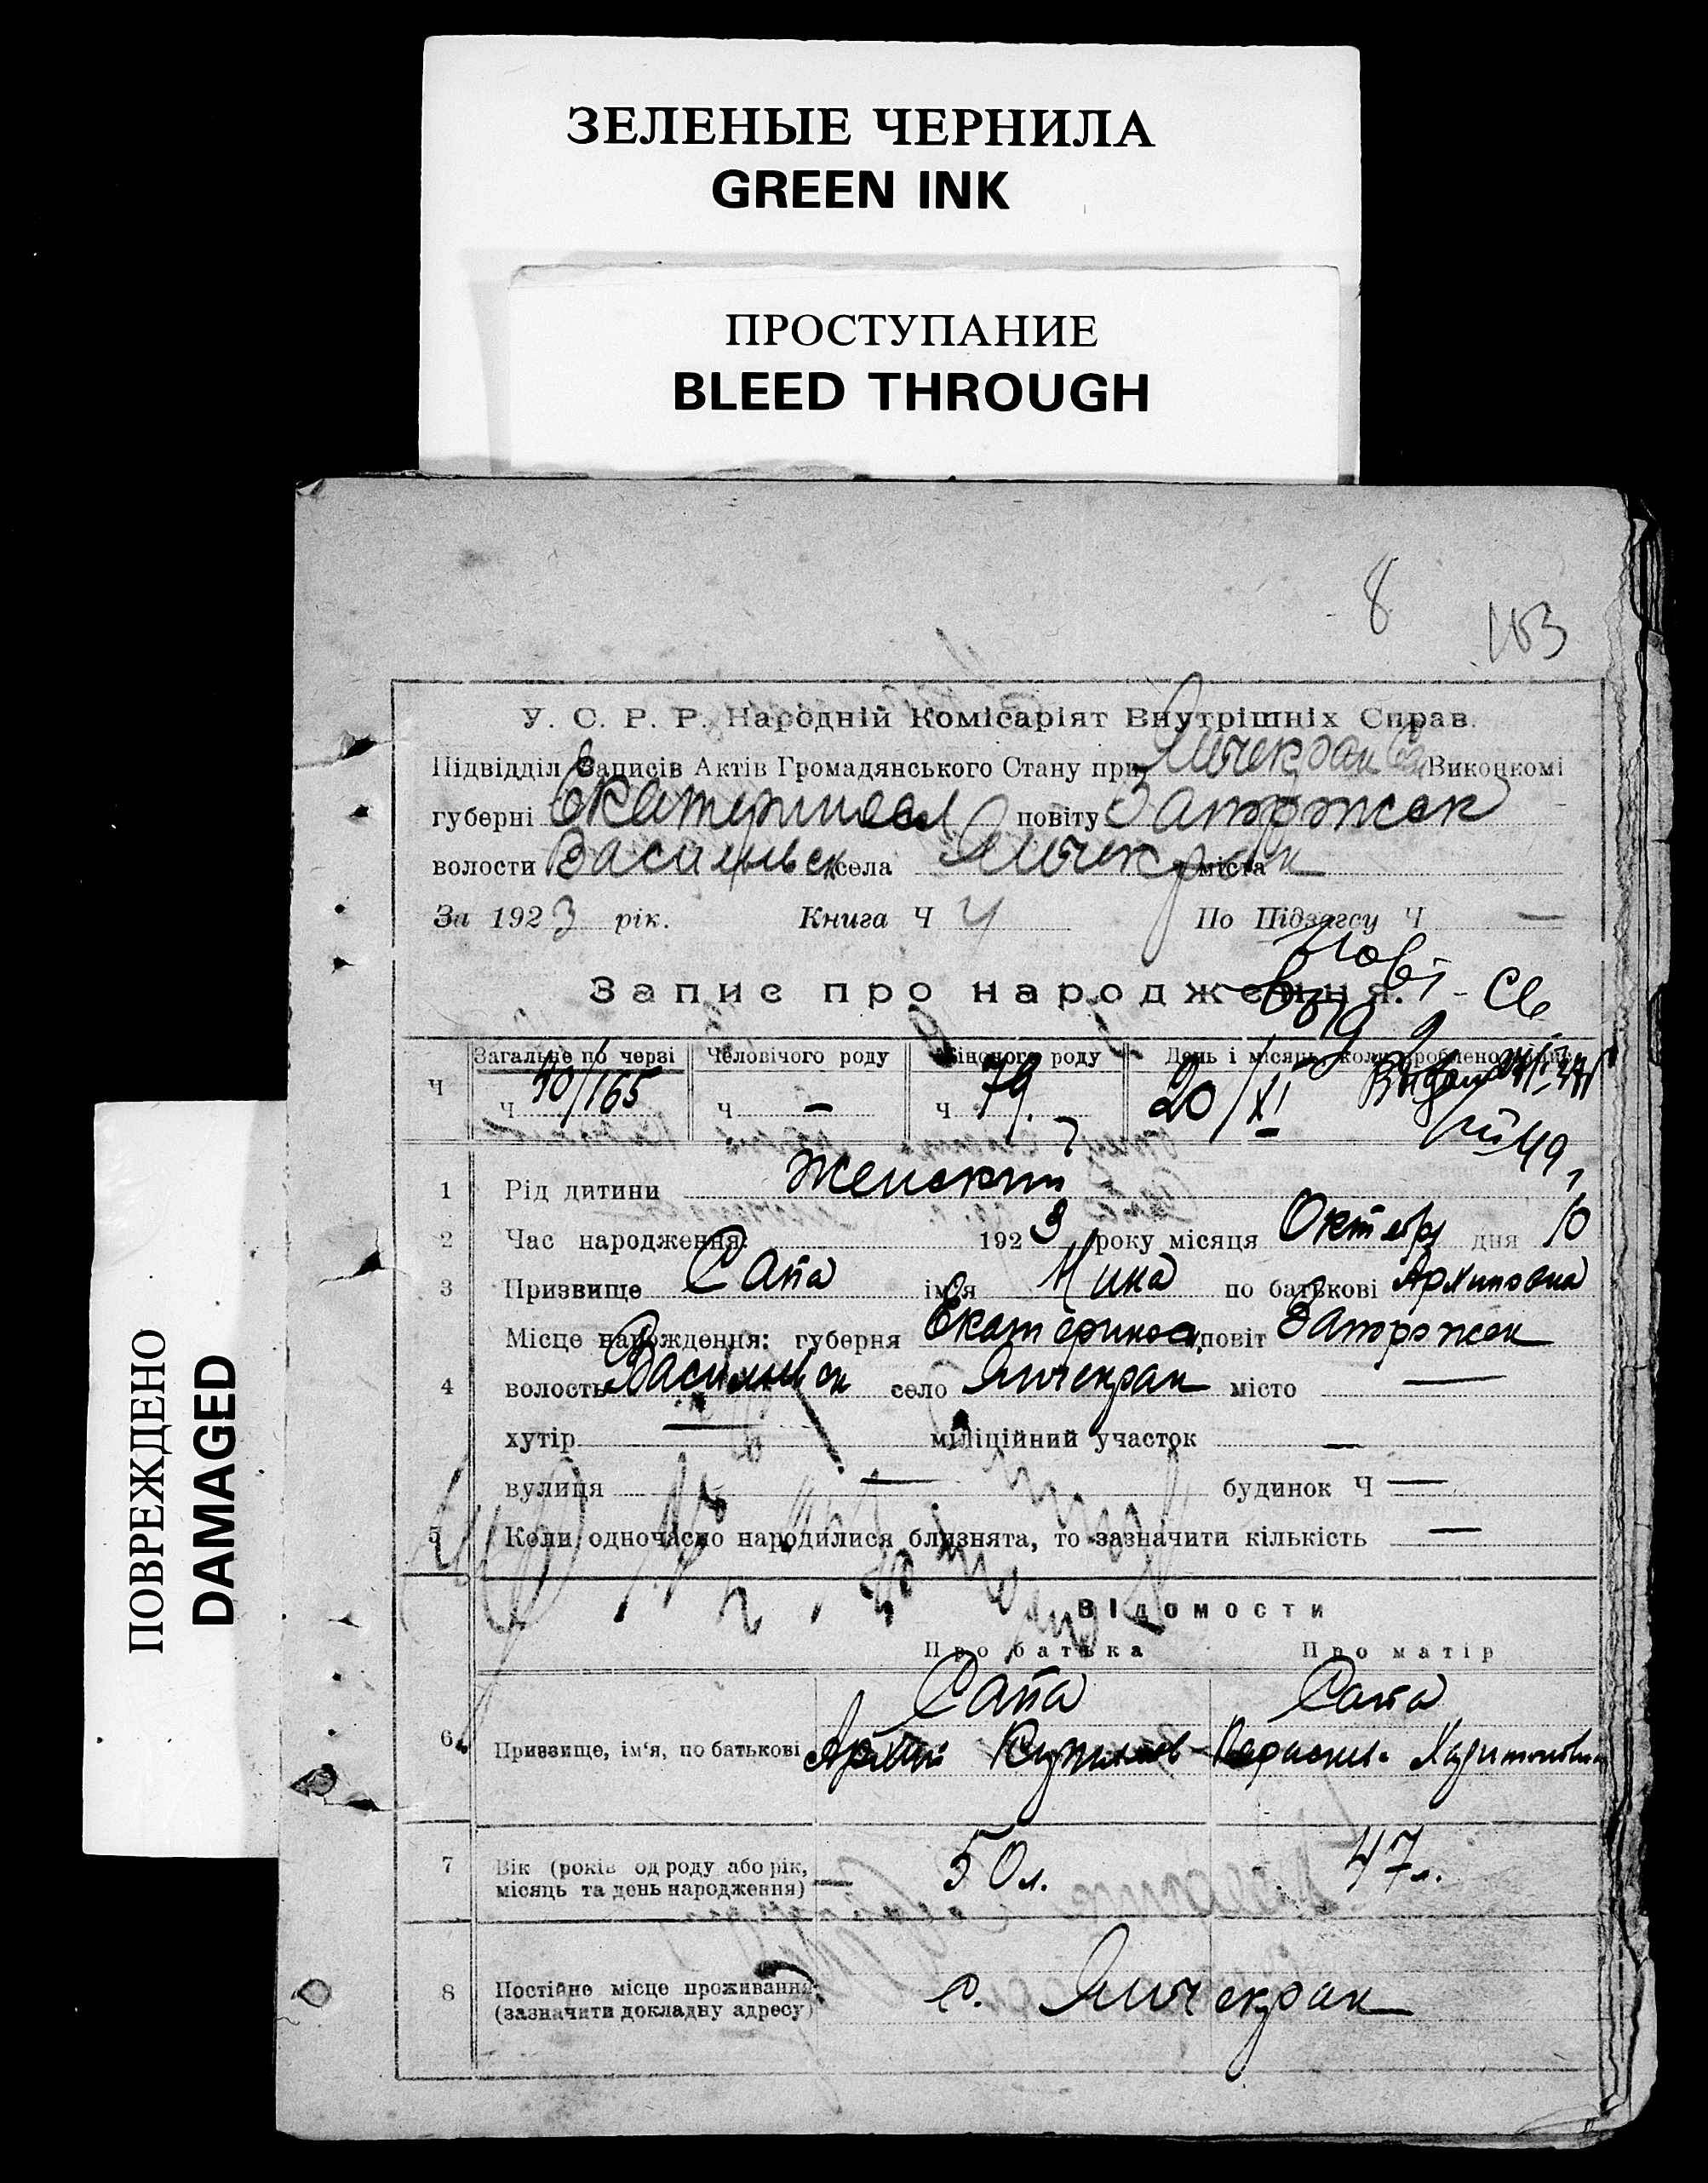 ЗЕЛЕНЫЕ ЧЕРНИЛА
GREEN INK
ПРОСТУПАНИЕ
BLEED THROUGH
ПОВРЕЖДЕНО
DAMAGED
8
103
У. С. Р. Р. Народній Комісаріят Внутрішніх Справ.
Підвідділ Записів Актів Громадянського Стану при Янчекрак Виконкомі
губерні Екатериносл повіту Запорожск
волости Васильевск села Янчекрак міста
За 1923 рік. Книга Ч 4 По Підзагсу Ч —
Запис про народження.
Загальне по черзі Человічого роду Жіночого роду День і місяць, коли зроблено запис
Ч Ч 40/165 Ч — Ч 79 20/XI
1 Рід дитини Женский
2 Час народження 1923 року місяця Октябр дня 10
3 Призвище Сапа ім'я Нина по батькові Архиповна
Місце народження: губерня Екатеринос повіт Запорожск
4 волость Васильевск село Янчекрак місто —
хутір — міліційний участок —
вулиця — будинок Ч —
5 Коли одночасно народилися близнята, то зазначити кількість —
Відомости
Про батька Про матір
Сапа Сапа
6 Призвище, ім'я, по батькові Архип Харитоновна
7 Вік (років од роду або рік, 50 л. 47 л.
місяць та день народження) —
8 Постійне місце проживання с. Янчекрак
(зазначити докладну адресу)